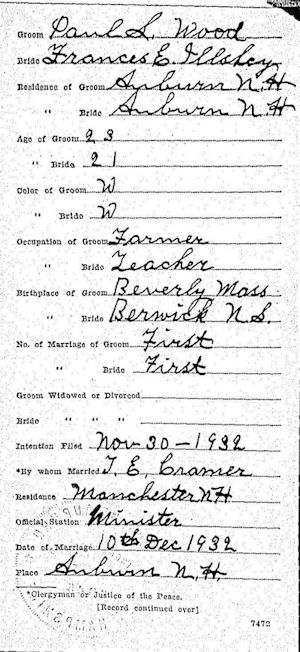 Groom Paul S. Wood
Bride Frances E. Illsley
Residence of Groom Auburn N.H
" Bride Auburn N.H
Age of Groom 23
" Bride 21
Color of Groom W
" Bride W
Occupation of Groom Farmer
" Bride Teacher
Birthplace of Groom Beverly Mass
" Bride Berwick N.S.
No. of Marriage of Groom First
" Bride First
Groom Widowed or Divorced
Bride " " "
Intention Filed Nov 30-1932
*By whom Married T. E. Cramer
Residence Manchester NH
Official Station Minister
Date of Marriage 10th Dec 1932
Place Auburn N.H.
*Clergyman or Justice of the Peace.
[Record continued over]
7472